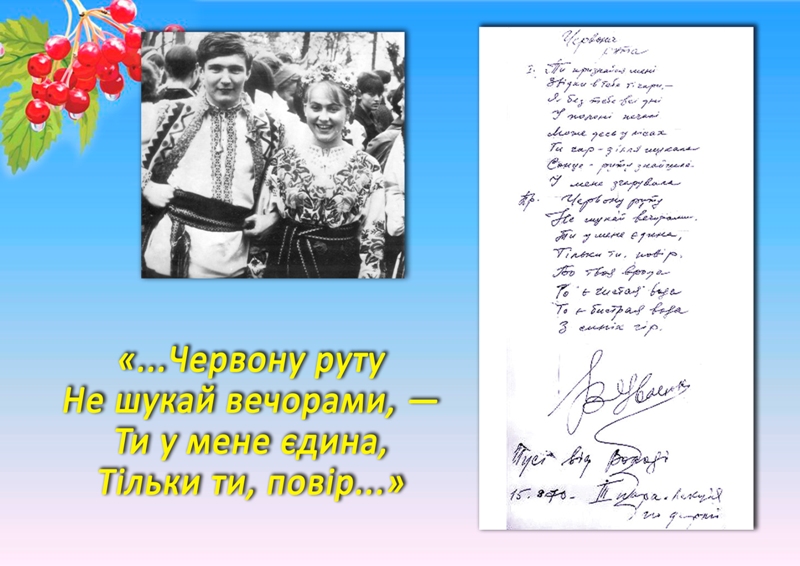 «...Червону руту
Не шукай вечорами, —
Ти у мене єдина,
Тільки ти, повір...»
Червона
рута
I. Ти признайся мені
Звідки в тебе ті чари, —
Я без тебе всі дні
У полоні печалі
Може десь у лісах
Ти чар-зілля шукала
Сонце-руту знайшла
У мене зчарувала
Пр. Червону руту
Не шукай вечорами.
Ти у мене єдина,
Тільки ти, повір.
Бо твоя врода
То є чистая вода
То є бистрая вода
З синіх гір.
Пусі від Володі
15.870. III пара. лекція